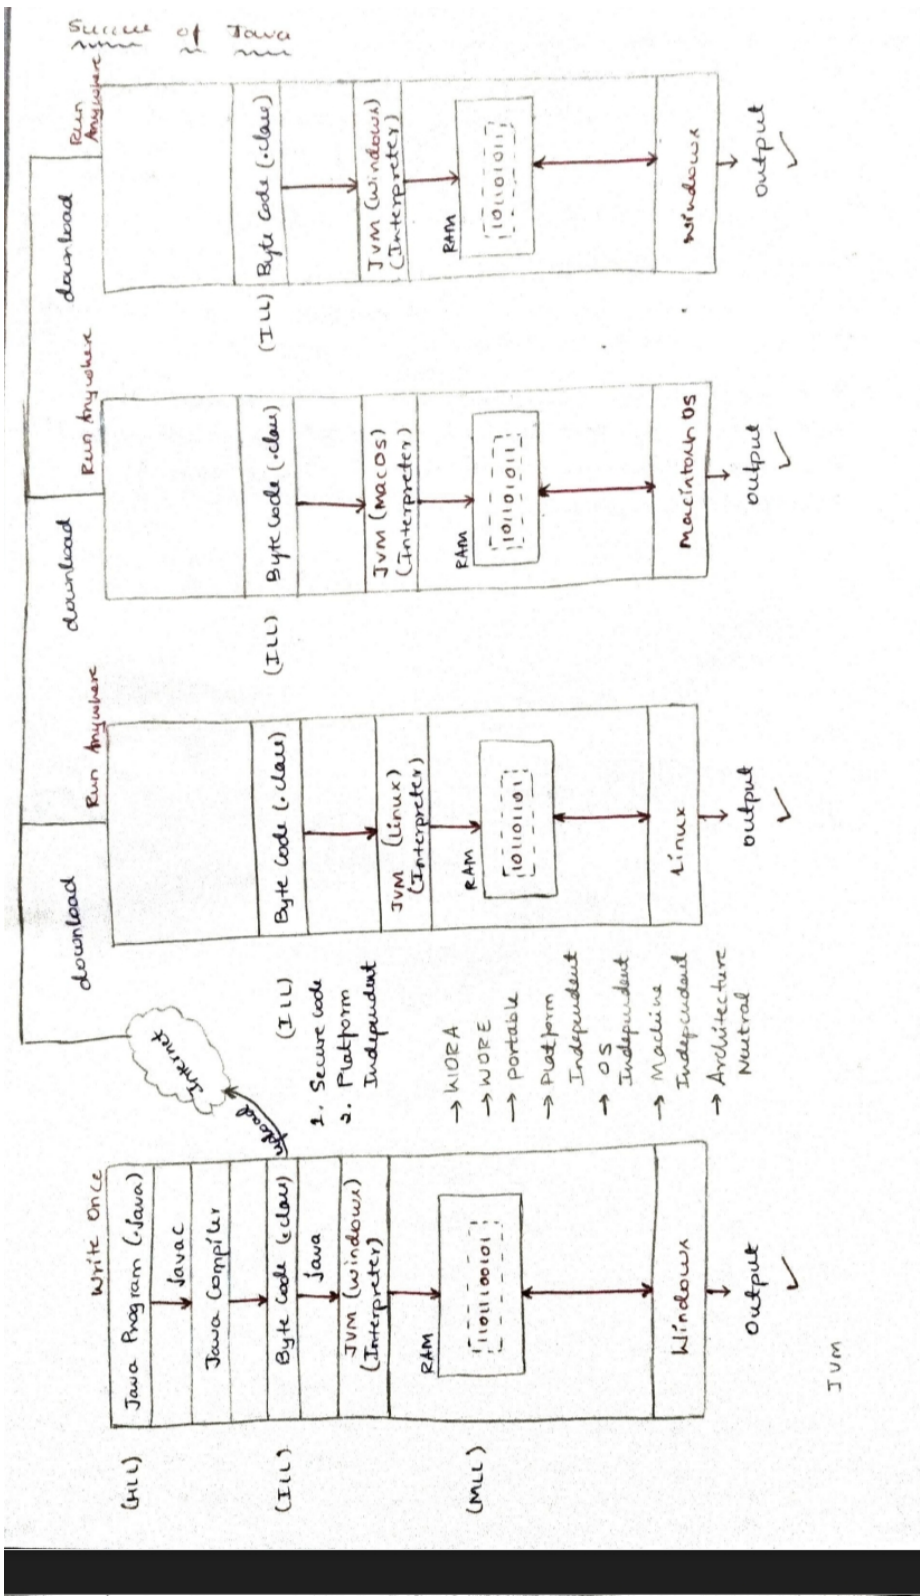 of Java
Write Once
(HLL)
Java Program (.Java)
Javac
Java Compiler
(ILL)
Byte Code (.class)
Java
JVM (Windows)
(Interpreter)
RAM
(MLL)
110111100101
Windows
Output
upload
Internet
1. Secure code
2. Platform
Independent
→ WORA
→ WORE
→ Portable
→ Platform
Independent
→ OS
Independent
→ Machine
Independent
→ Architecture
Neutral
download
Run Anywhere
(ILL)
Byte Code (.class)
JVM (Linux)
(Interpreter)
RAM
101101101
Linux
Output
download
Run Anywhere
(ILL)
Byte Code (.class)
JVM (MacOS)
(Interpreter)
RAM
101101011
Macintosh OS
Output
download
Run
Anywhere
(ILL)
Byte Code (.class)
JVM (Windows)
(Interpreter)
RAM
1011010111
Windows
Output
JVM